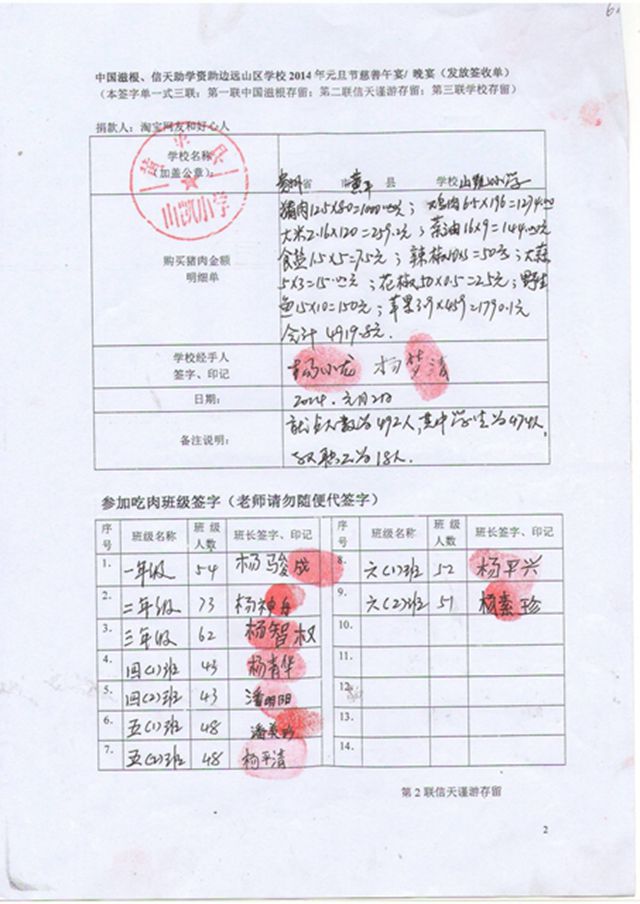 中国滋根、信天助学资助边远山区学校2014年元旦节慈善午宴/ 晚宴（发放签收单）
（本签字单一式三联：第一联中国滋根存留；第二联信天谨游存留；第三联学校存留）
捐款人：淘宝网友和好心人
学校名称
（加盖公章）：
贵州省 市 黄平 县 学校山凯小学
山凯小学
购买猪肉金额
明细单
猪肉12.5X80=1000.00元；鸡肉6.5X196=1274.00
大米2.16X120=259.2元；菜油16X9=144.00元
食盐1.5X5=7.5元；辣椒10X5=50元；大蒜
5X3=15.00元；花椒50X0.5=25元；野生
鱼15X10=150元；苹果3.9X459=1790.1元
合计 4919.8元.
学校经手人
签字、印记
杨小龙 杨梦清
日期：
2014.元月2日
备注说明：
就餐人数为492人,其中学生为474人,
教职工为18人.
参加吃肉班级签字（老师请勿随便代签字）
序号 班级名称 班级人数 班长签字、印记 序号 班级名称 班级人数 班长签字、印记
1. 一年级 54 杨骏成 8. 六(1)班 52 杨平兴
2. 二年级 73 杨神舟 9. 六(2)班 51 杨素珍
3. 三年级 62 杨智权 10.
4. 四(1)班 43 杨青华 11.
5. 四(2)班 43 潘明阳 12.
6. 五(1)班 48 潘美 13.
7. 五(2)班 48 杨平清 14.
第2联信天谨游存留
2